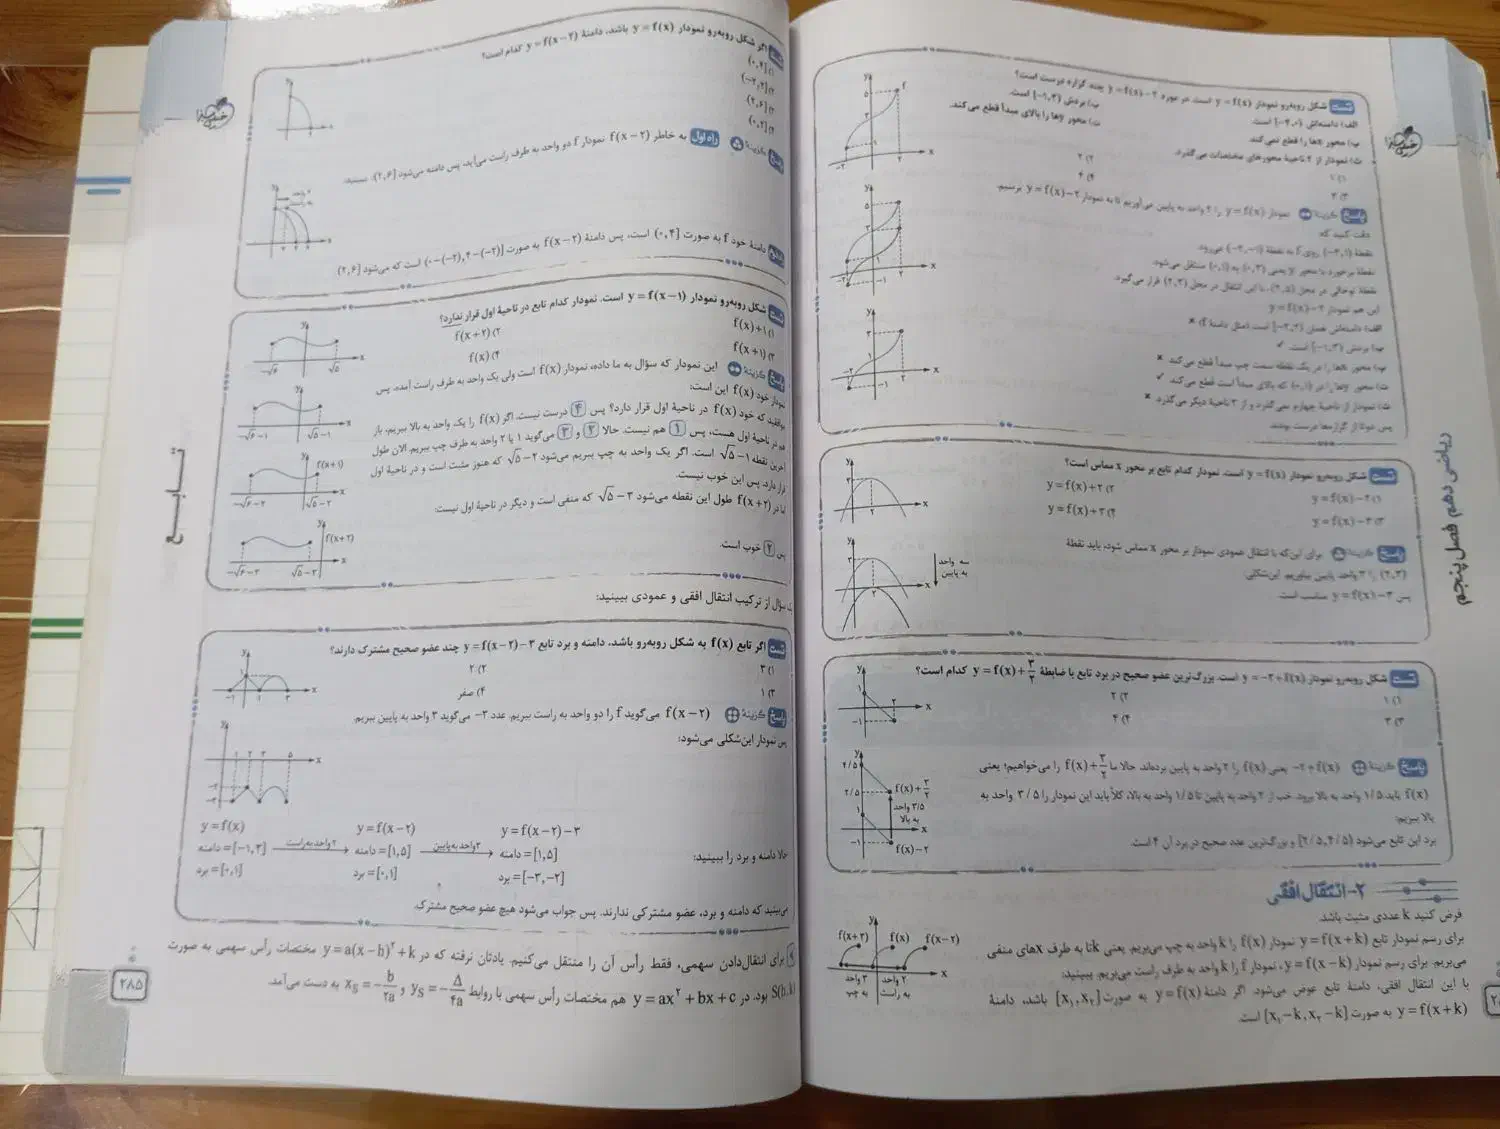 تست شکل روبه‌رو نمودار y = f(x) است. در مورد y = f(x) − ۲ چند گزاره درست است؟
الف) دامنه‌اش [−۴,۰] است.
ب) بردش [−۱,۳] است.
پ) محور xها را قطع نمی‌کند.
ت) محور yها را بالای مبدأ قطع می‌کند.
ث) نمودار از ۴ ناحیهٔ محورهای مختصات می‌گذرد.
۱) ۱
۲) ۲
۳) ۳
۴) ۴
پاسخ گزینهٔ نمودار y = f(x) را ۲ واحد به پایین می‌آوریم تا به نمودار y = f(x) − ۲ برسیم.
دقت کنید که:
نقطهٔ (−۲,۱) روی f به نقطهٔ (−۲,−۱) می‌رود.
نقطهٔ برخورد با محور y یعنی (۰,۳) به (۰,۱) منتقل می‌شود.
نقطهٔ توخالی در محل (۲,۵)، با این انتقال در محل (۲,۳) قرار می‌گیرد.
این هم نمودار y = f(x) − ۲
الف) دامنه‌اش همان [−۲,۲) است (مثل دامنهٔ f). ×
ب) بردش [−۱,۳) است. ✓
پ) محور xها را در یک نقطه سمت چپ مبدأ قطع می‌کند. ×
ت) محور yها را در (۰,۱) که بالای مبدأ است قطع می‌کند. ✓
ث) نمودار از ناحیهٔ چهارم نمی‌گذرد و از ۳ ناحیهٔ دیگر می‌گذرد. ×
پس دوتا از گزاره‌ها درست بودند.
تست شکل روبه‌رو نمودار y = f(x) است. نمودار کدام تابع بر محور x مماس است؟
۱) y = f(x) − ۲
۲) y = f(x) + ۲
۳) y = f(x) − ۳
۴) y = f(x) + ۳
پاسخ گزینهٔ برای این‌که با انتقال عمودی نمودار بر محور x مماس شود، باید نقطهٔ
(۲,۳) را ۳ واحد پایین بیاوریم. این‌شکلی:
پس y = f(x) − ۳ مناسب است.
سه واحد
به پایین
تست شکل روبه‌رو نمودار y = −۲ + f(x) است. بزرگ‌ترین عضو صحیح در برد تابع با ضابطهٔ y = f(x) + ۳/۲ کدام است؟
۱) ۱
۲) ۲
۳) ۳
۴) ۴
پاسخ گزینهٔ −۲ + f(x) یعنی f(x) را ۲ واحد به پایین برده‌اند. حالا ما f(x) + ۳/۲ را می‌خواهیم؛ یعنی
f(x) باید ۱/۵ واحد به بالا برود. خب از ۲ واحد به پایین تا ۱/۵ واحد به بالا، کلاً باید این نمودار را ۳/۵ واحد به
بالا ببریم:
برد این تابع می‌شود [۲/۵,۴/۵) و بزرگ‌ترین عدد صحیح در برد آن ۴ است.
f(x) + ۳/۲
۳/۵ واحد
به بالا
f(x) − ۲
۲- انتقال افقی
فرض کنید k عددی مثبت باشد.
برای رسم نمودار تابع y = f(x + k) نمودار f(x) را k واحد به چپ می‌بریم. یعنی k تا به طرف xهای منفی
می‌بریم. برای رسم نمودار y = f(x − k)، نمودار f را k واحد به طرف راست می‌بریم. ببینید:
f(x+۳) f(x) f(x−۲)
۳ واحد به چپ
۲ واحد به راست
با این انتقال افقی، دامنهٔ تابع عوض می‌شود. اگر دامنهٔ y = f(x) به صورت [x₁, x₂] باشد، دامنهٔ
y = f(x + k) به صورت [x₁ − k, x₂ − k] است.
ریاضی دهم فصل پنجم
تست اگر شکل روبه‌رو نمودار y = f(x) باشد، دامنهٔ y = f(x − ۲) کدام است؟
۱) (۰,۴]
۲) (−۲,۲]
۳) (۲,۶]
۴) (۰,۲]
پاسخ گزینهٔ راه اول به خاطر f(x − ۲) نمودار f دو واحد به طرف راست می‌آید، پس دامنه می‌شود (۲,۶]. ببینید:
دامنهٔ خود f به صورت (۰,۴] است، پس دامنهٔ f(x − ۲) به صورت (۰ − (−۲), ۴ − (−۲)] است که می‌شود (۲,۶]
تست شکل روبه‌رو نمودار y = f(x − ۱) است. نمودار کدام تابع در ناحیهٔ اول قرار ندارد؟
۱) f(x) + ۱
۲) f(x + ۲)
۳) f(x + ۱)
۴) f(x)
پاسخ گزینهٔ این نمودار که سؤال به ما داده، نمودار f(x) است ولی یک واحد به طرف راست آمده، پس
نمودار خود f(x) این است:
موافقید که خود f(x) در ناحیهٔ اول قرار دارد؟ پس ۴ درست نیست. اگر f(x) را یک واحد به بالا ببریم، باز
هم در ناحیهٔ اول هست، پس ۱ هم نیست. حالا ۲ و ۳ می‌گوید ۱ یا ۲ واحد به طرف چپ ببریم. الان طول
آخرین نقطه √۵ − ۱ است. اگر یک واحد به چپ ببریم می‌شود √۵ − ۲ که هنوز مثبت است و در ناحیهٔ اول
قرار دارد. پس این خوب نیست.
اما در f(x + ۲) طول این نقطه می‌شود √۵ − ۳ که منفی است و دیگر در ناحیهٔ اول نیست:
پس ۲ خوب است.
یک سؤال از ترکیب انتقال افقی و عمودی ببینید:
تست اگر تابع f(x) به شکل روبه‌رو باشد، دامنه و برد تابع y = f(x − ۲) − ۳ چند عضو صحیح مشترک دارند؟
۱) ۳
۲) ۲
۳) ۱
۴) صفر
پاسخ گزینهٔ f(x − ۲) می‌گوید f را دو واحد به راست ببریم. عدد ۳− می‌گوید ۳ واحد به پایین ببریم.
پس نمودار این‌شکلی می‌شود:
حالا دامنه و برد را ببینید:
y = f(x) y = f(x − ۲) y = f(x − ۲) − ۳
دامنه = [−۱,۳] ۲ واحد به راست دامنه = [۱,۵] ۳ واحد به پایین دامنه = [۱,۵]
برد = [۰,۱] برد = [۰,۱] برد = [−۳,−۲]
می‌بینید که دامنه و برد، عضو مشترکی ندارند. پس جواب می‌شود هیچ عضو صحیح مشترک.
برای انتقال‌دادن سهمی، فقط رأس آن را منتقل می‌کنیم. یادتان نرفته که در y = a(x − h)² + k مختصات رأس سهمی به صورت
S(h,k) بود. در y = ax² + bx + c هم مختصات رأس سهمی با روابط y_S = −Δ/۴a و x_S = −b/۲a به دست می‌آمد.
تابع
۲۸۵